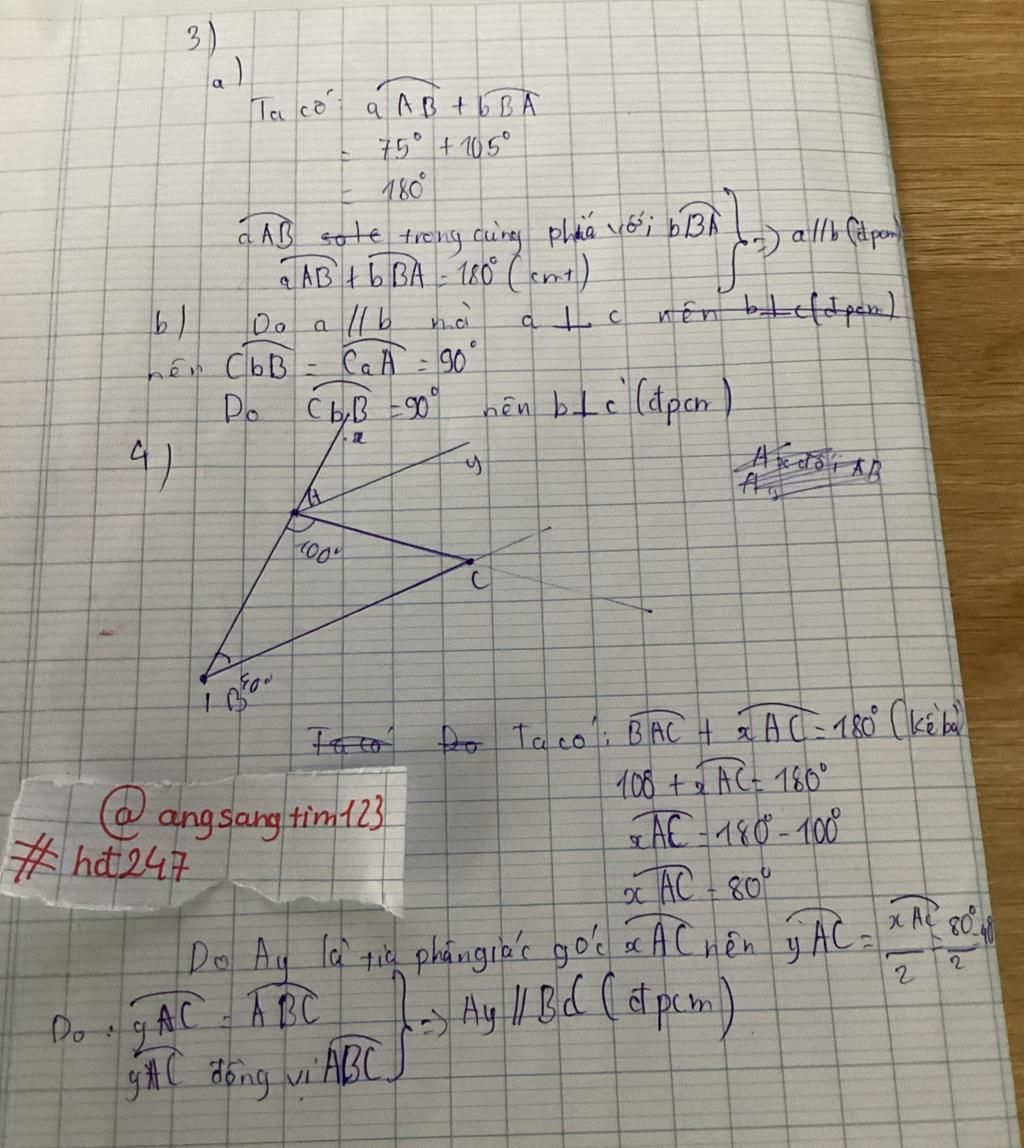 3)
a)
Ta có: aAB + bBA
= 75° + 105°
= 180°
aAB sole trong cùng phía với bBA } => a//b (đpcm)
aAB + bBA = 180° (cmt)
b) Do a // b mà a ⊥ c nên b ⊥ c (đpcm)
nên CbB = CaA = 90°
Do CbB = 90° nên b ⊥ c (đpcm)
4)
x
y
A
100°
C
B
40°
Ax đối AB
A
Ta có Do Ta có: BAC + xAC = 180° (kề bù
100 + xAC = 180°
xAC = 180° - 100°
xAC = 80°
@angsangtim123
#hdt247
Do Ay là tia phân giác góc xAC nên yAC = xAC/2 = 80°/2 = 40
Do: yAC = ABC } => Ay // BC (đpcm)
yAC đồng vị ABC